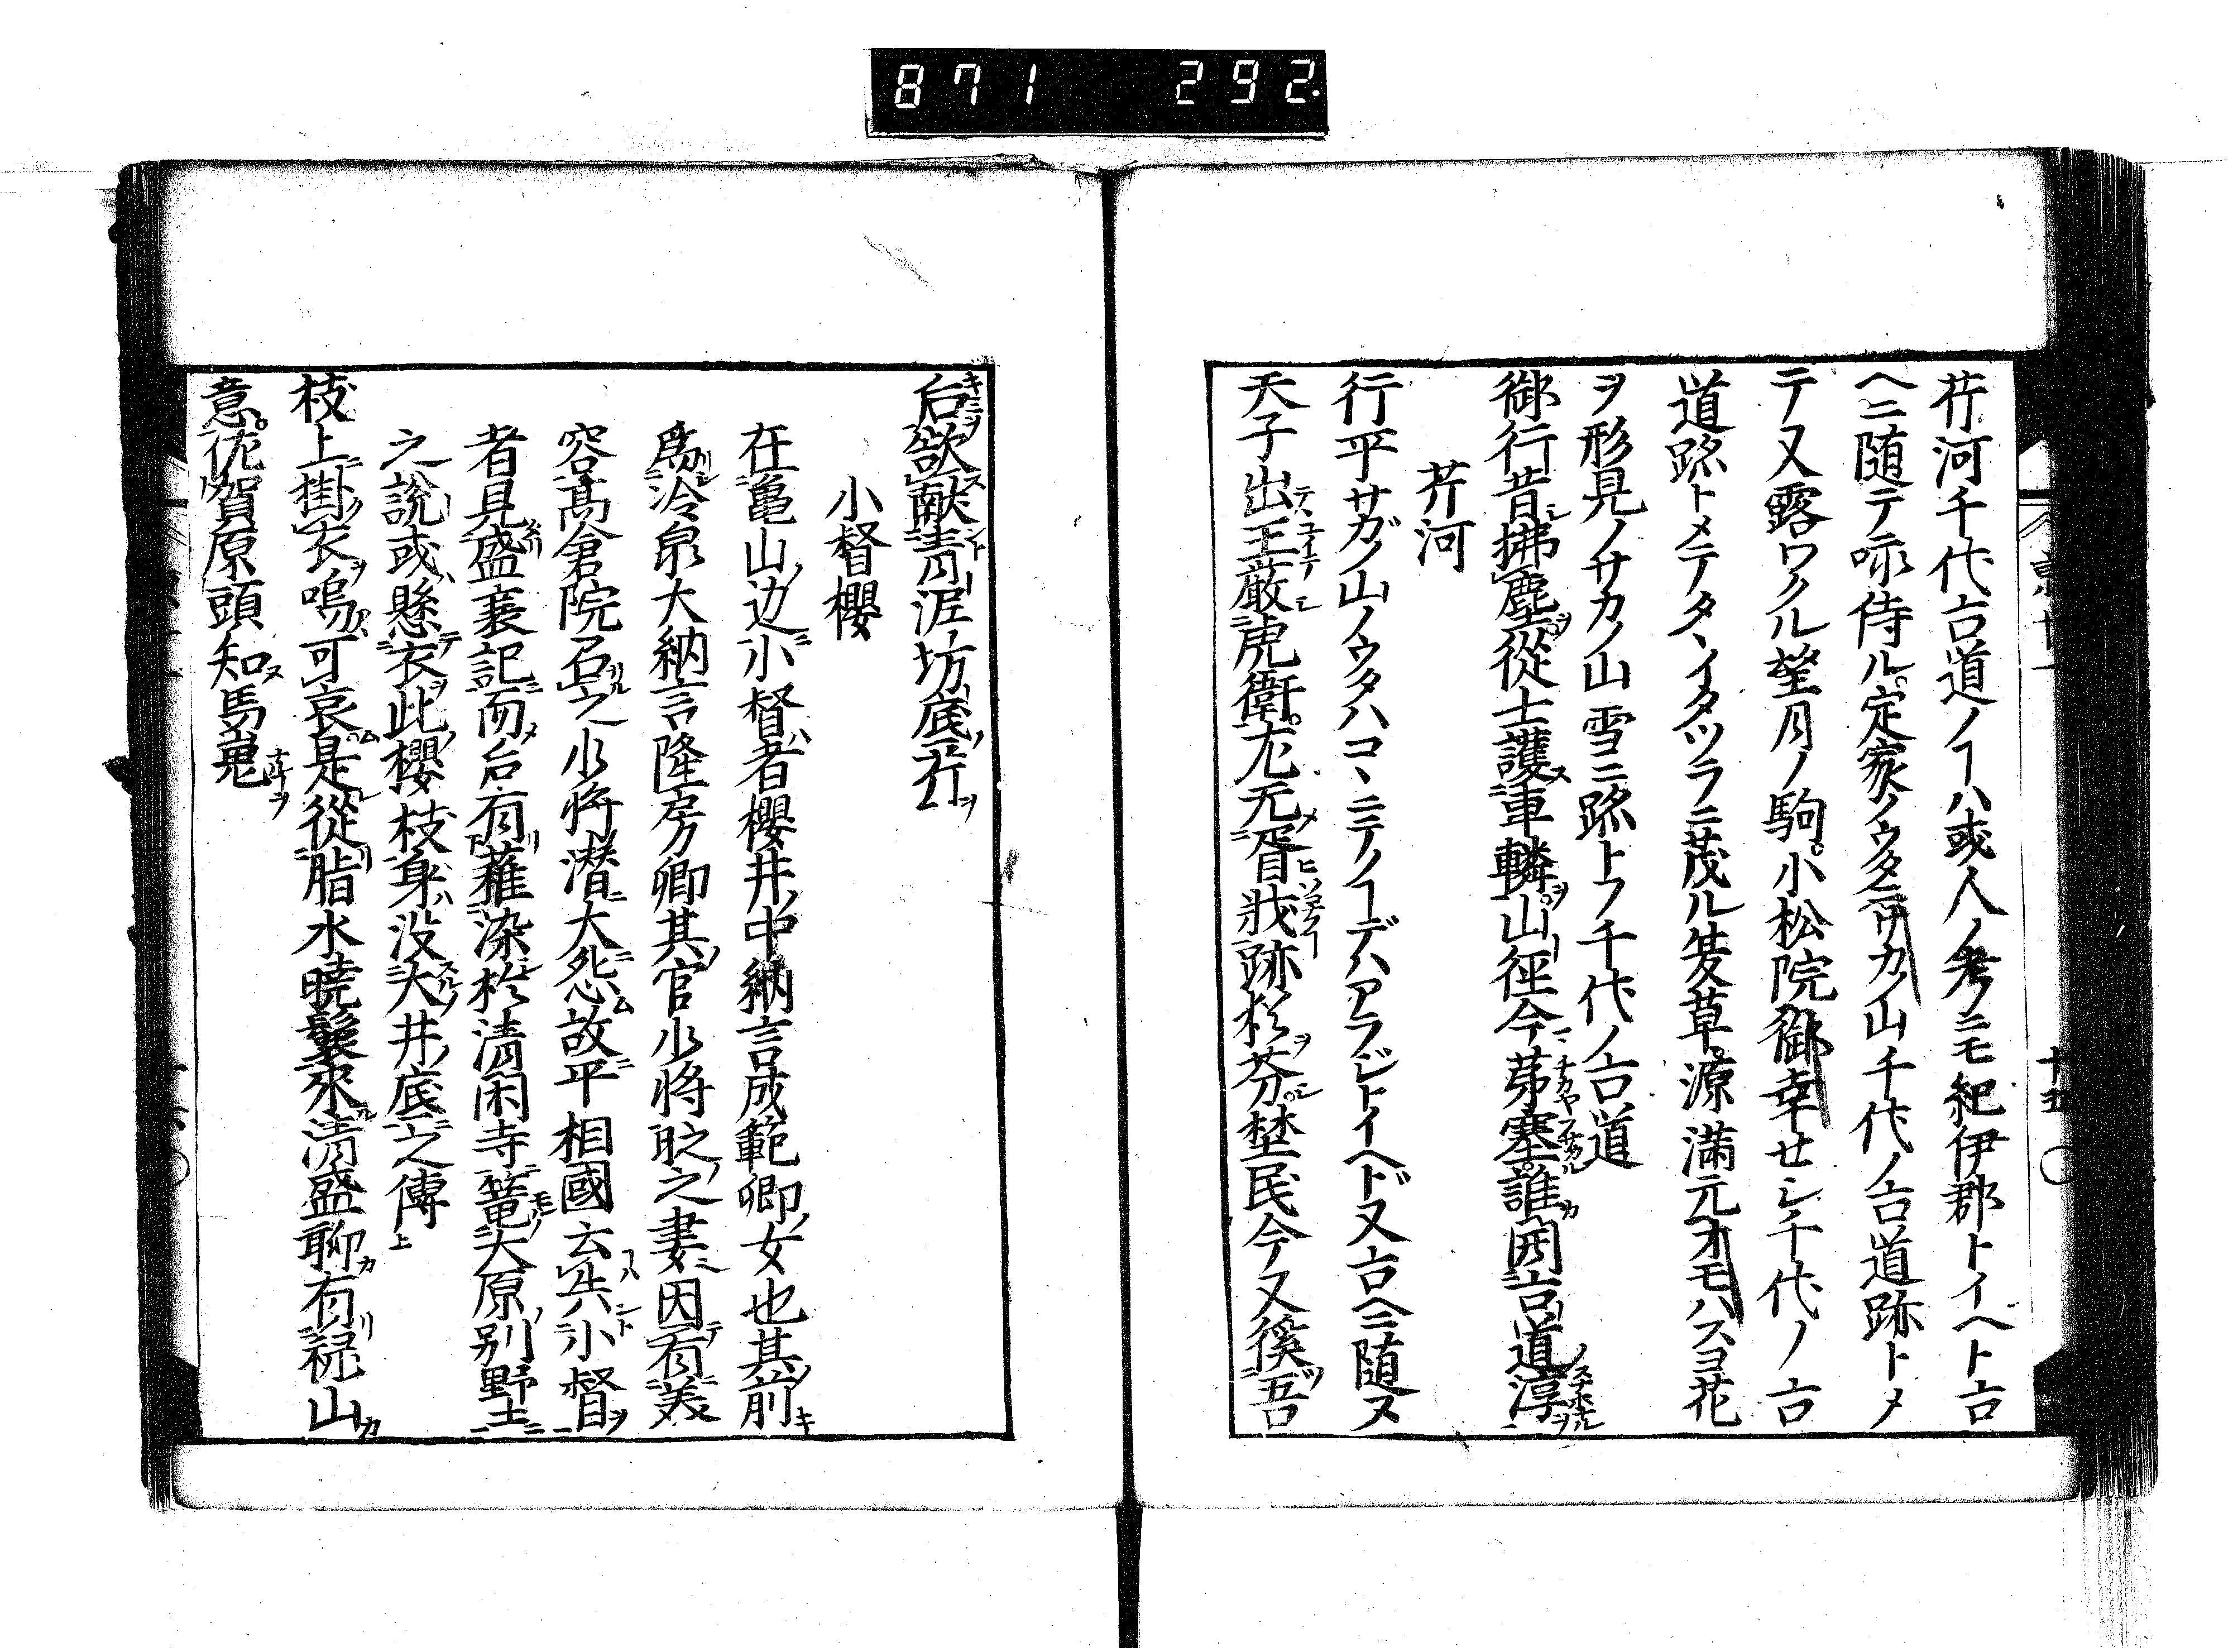 871 292.
芹河千代古道ノヿハ或人ノ考ノニモ紀伊郡トイベト古
ヘニ随テ哌侍ル。定家ノウタニサカノ山千代ノ古道跡トメ
テ又露ワクル望月ノ駒。小松院御幸セシ千代ノ古
道跡トメテタヽイタツラニ茂ル夌草。源満元オモハスヨ花
ヲ形見ノサカノ山雪ニ跡トフ千代ノ古道
御行昔拂塵從士護車轔。山徑今茀塞。誰因古道淳
芹河
行平サガノ山ノウタハコヽニテノヿデハアラジトイヘドヌ古ヘニ随ヌ
天子出王嚴虎衛。尤无胥戕跡於芬。埜民今又徯吾
后欲献青泥坊底芹
小督櫻
在亀山边小督者櫻井中納言成範卿女也其前
為冷泉大納言隆房卿其官少将时之妻因有美
容高倉院召之少将潜大怨故平相國云失小督
者見盛衰記而后有薙染於清閑寺篭大原別野土
之說或懸衣此櫻枝身没大井底之傳
枝上掛衣嗚可哀是從脂水暁鬟來清盛聊有禄山
意。佐賀原頭知馬嵬